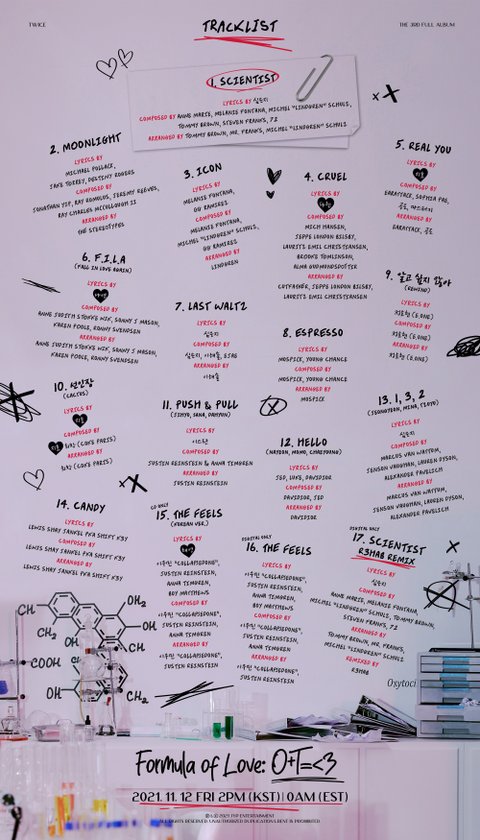 TWICE
TRACKLIST
THE 3RD FULL ALBUM
1. SCIENTIST
LYRICS BY 심은지
COMPOSED BY ANNE MARIE, MELANIE FONTANA, MICHEL "LINDGREN" SCHULZ,
TOMMY BROWN, STEVEN FRANKS, 72
ARRANGED BY TOMMY BROWN, MR. FRANKS, MICHEL "LINDGREN" SCHULZ
2. MOONLIGHT
LYRICS BY
MICHAEL POLLACK,
JAKE TORREY, DESTINY ROGERS
COMPOSED BY
JONATHAN YIP, RAY ROMULUS, JEREMY REEVES,
RAY CHARLES MCCULLOUGH II
ARRANGED BY
THE STEREOTYPES
3. ICON
LYRICS BY
MELANIE FONTANA,
GG RAMIREZ
COMPOSED BY
MELANIE FONTANA,
MICHEL "LINDGREN" SCHULZ,
GG RAMIREZ
ARRANGED BY
LINDGREN
4. CRUEL
LYRICS BY
COMPOSED BY
MICH HANSEN,
JEPPE LONDON BILSBY,
LAURITZ EMIL CHRISTIANSEN,
BROOKE TOMLINSON,
ALMA GUDMUNDSDOTTER
ARRANGED BY
CUTFATHER, JEPPE LONDON BILSBY,
LAURITZ EMIL CHRISTIANSEN
5. REAL YOU
LYRICS BY
COMPOSED BY
EARATTACK, SOPHIA PAE,
ARRANGED BY
EARATTACK, 공도
6. F.I.L.A
(FALL IN LOVE AGAIN)
LYRICS BY
COMPOSED BY
ANNE JUDITH STOKKE WIK, SONNY J MASON,
KAREN POOLE, RONNY SVENDSEN
ARRANGED BY
ANNE JUDITH STOKKE WIK, SONNY J MASON,
KAREN POOLE, RONNY SVENDSEN
7. LAST WALTZ
LYRICS BY
심은지
COMPOSED BY
심은지, 이해솔, EJAE
ARRANGED BY
이해솔
8. ESPRESSO
LYRICS BY
COMPOSED BY
NOSPICE, YOUNG CHANCE
ARRANGED BY
NOSPICE
9. 알고 싶지 않아
(REWIND)
LYRICS BY
COMPOSED BY
ARRANGED BY
10. 선인장
(CACTUS)
LYRICS BY
COMPOSED BY
(COKE PARIS)
ARRANGED BY
(COKE PARIS)
11. PUSH & PULL
(JIHYO, SANA, DAHYUN)
LYRICS BY
이스란
COMPOSED BY
JUSTIN REINSTEIN & ANNA TIMGREN
ARRANGED BY
JUSTIN REINSTEIN
12. HELLO
(NAYEON, MOMO, CHAEYOUNG)
LYRICS BY
JED, LUKE, DAVIDIOR
COMPOSED BY
DAVIDIOR, JED
ARRANGED BY
DAVIDIOR
13. 1, 3, 2
(JEONGYEON, MINA, TZUYU)
LYRICS BY
심은지
COMPOSED BY
MARCUS VAN WATTUM,
JENSON VAUGHAN, LAUREN DYSON,
ALEXANDER PAVELICH
ARRANGED BY
MARCUS VAN WATTUM,
JENSON VAUGHAN, LAUREN DYSON,
ALEXANDER PAVELICH
14. CANDY
LYRICS BY
LEWIS SHAY JANKEL PKA SHIFT K3Y
COMPOSED BY
LEWIS SHAY JANKEL PKA SHIFT K3Y
ARRANGED BY
LEWIS SHAY JANKEL PKA SHIFT K3Y
CD ONLY
15. THE FEELS
(KOREAN VER.)
LYRICS BY
이우민 "COLLAPSEDONE",
JUSTIN REINSTEIN,
ANNA TIMGREN,
BOY MATTHEWS
COMPOSED BY
이우민 "COLLAPSEDONE",
JUSTIN REINSTEIN,
ANNA TIMGREN
ARRANGED BY
이우민 "COLLAPSEDONE",
JUSTIN REINSTEIN
DIGITAL ONLY
16. THE FEELS
LYRICS BY
이우민 "COLLAPSEDONE",
JUSTIN REINSTEIN,
ANNA TIMGREN,
BOY MATTHEWS
COMPOSED BY
이우민 "COLLAPSEDONE",
JUSTIN REINSTEIN,
ANNA TIMGREN
ARRANGED BY
이우민 "COLLAPSEDONE",
JUSTIN REINSTEIN
DIGITAL ONLY
17. SCIENTIST
R3HAB REMIX
LYRICS BY
심은지
COMPOSED BY
ANNE MARIE, MELANIE FONTANA,
MICHEL "LINDGREN" SCHULZ, TOMMY BROWN,
STEVEN FRANKS, 72
ARRANGED BY
TOMMY BROWN, MR. FRANKS,
MICHEL "LINDGREN" SCHULZ
REMIXED BY
R3HAB
CH
OH₂
OH
CH₂
CH
COOH
CH₂
OH
Oxytoci
Formula of Love: O+T=<3
2021. 11. 12 FRI 2PM (KST) | 0AM (EST)
2021 JYP ENTERTAINMENT
ALL RIGHTS RESERVED. UNAUTHORIZED DUPLICATION/RENT IS PROHIBITED.